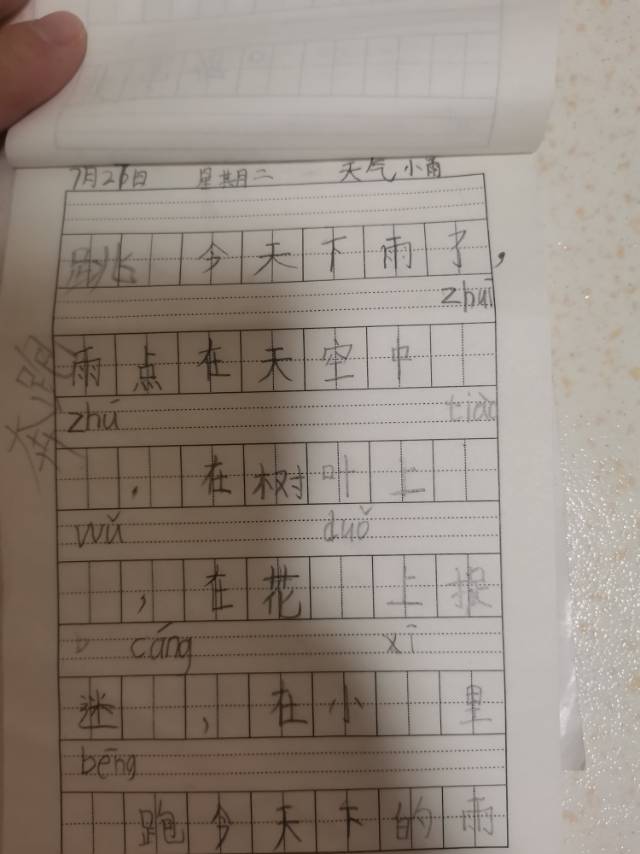 7月26日 星期二 天气小雨
跳 今天下雨了，
zhuī
雨点在天空中
zhú tiào
，在树叶上
wǔ duǒ
，在花 上捉
cáng xī
迷 ，在小 里
bēng
跑今天下的雨